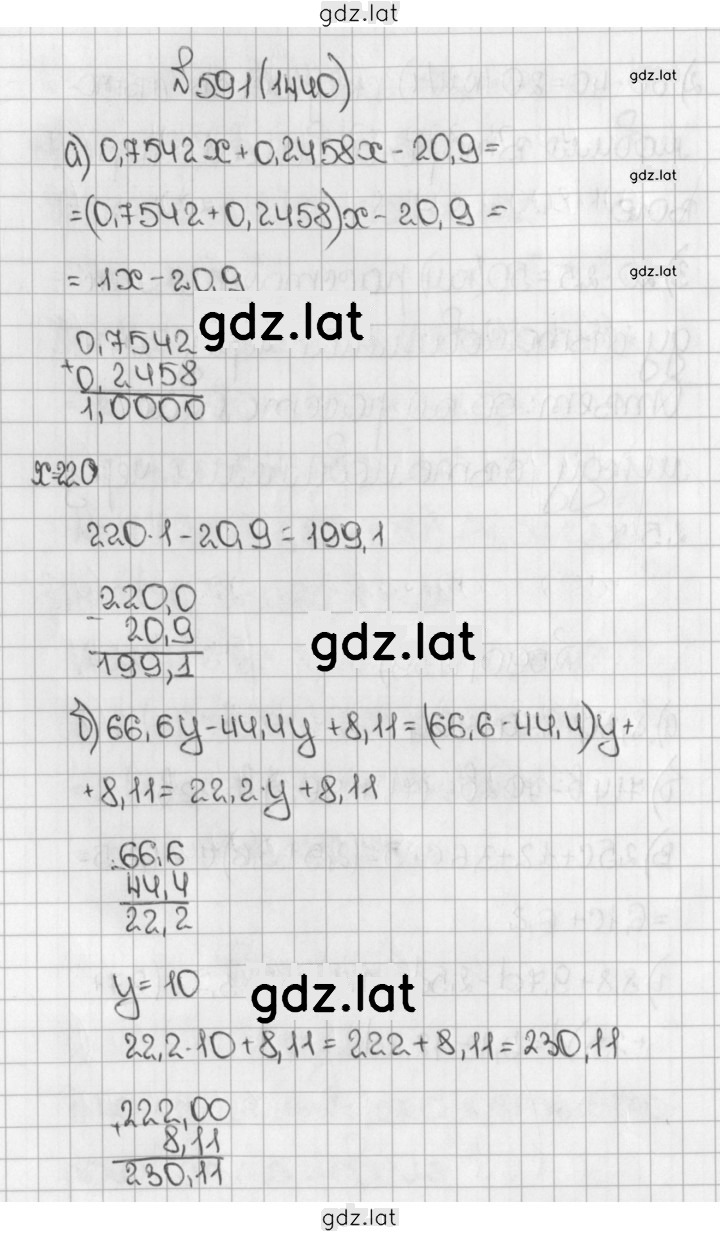 gdz.lat
№591(1440)
gdz.lat
а) 0,7542x+0,2458x-20,9=
gdz.lat
=(0,7542+0,2458)x-20,9=
gdz.lat
=1x-20,9
gdz.lat
0,7542
+0,2458
1,0000
x=220
220·1-20,9=199,1
220,0
- 20,9
199,1
gdz.lat
б) 66,6y-44,4y+8,11=(66,6-44,4)y+
+8,11=22,2·y+8,11
-66,6
44,4
22,2
y=10
gdz.lat
22,2·10+8,11=222+8,11=230,11
222,00
+ 8,11
230,11
gdz.lat